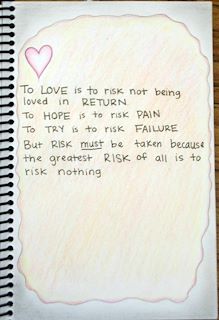 To LOVE is to risk not being
loved in RETURN.
To HOPE is to risk PAIN
To TRY is to risk FAILURE
But RISK must be taken because
the greatest RISK of all is to
risk nothing